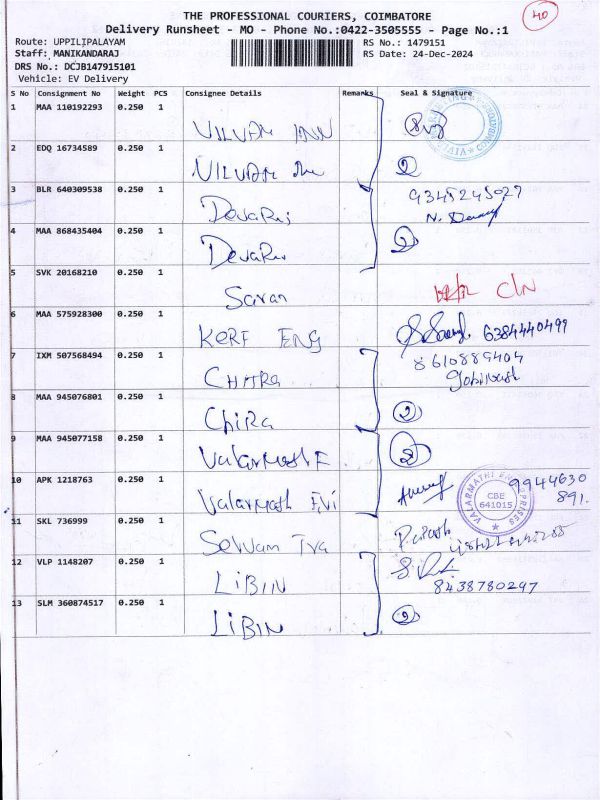 THE PROFESSIONAL COURIERS, COIMBATORE
40
Delivery Runsheet - MO - Phone No.:0422-3505555 - Page No.:1
Route: UPPILIPALAYAM
RS No.: 1479151
Staff: MANIKANDARAJ
RS Date: 24-Dec-2024
DRS No.: DCJB147915101
Vehicle: EV Delivery
S No Consignment No Weight PCS Consignee Details Remarks Seal & Signature
1 MAA 110192293 0.250 1 VILVAM INN
2 EDQ 16734589 0.250 1 VILVAM Inn 2
3 BLR 640309538 0.250 1 DevaRaj 9345245027
4 MAA 868435404 0.250 1 DevaRaj 2
5 SVK 20168210 0.250 1 Saran CIN
6 MAA 575928300 0.250 1 KERF ENG 6384440499
7 IXM 507568494 0.250 1 CHITRA 8610889404
Gobinath
8 MAA 945076801 0.250 1 ChiRa 2
9 MAA 945077158 0.250 1 Valarmath E 2
10 APK 1218763 0.250 1 Valarmath Eni 9944630
891.
VALARMATHI ENTERPRISES
CBE
641015
11 SKL 736999 0.250 1 Servam Tra
12 VLP 1148207 0.250 1 LIBIN
8438780297
13 SLM 360874517 0.250 1 LIBIN 2